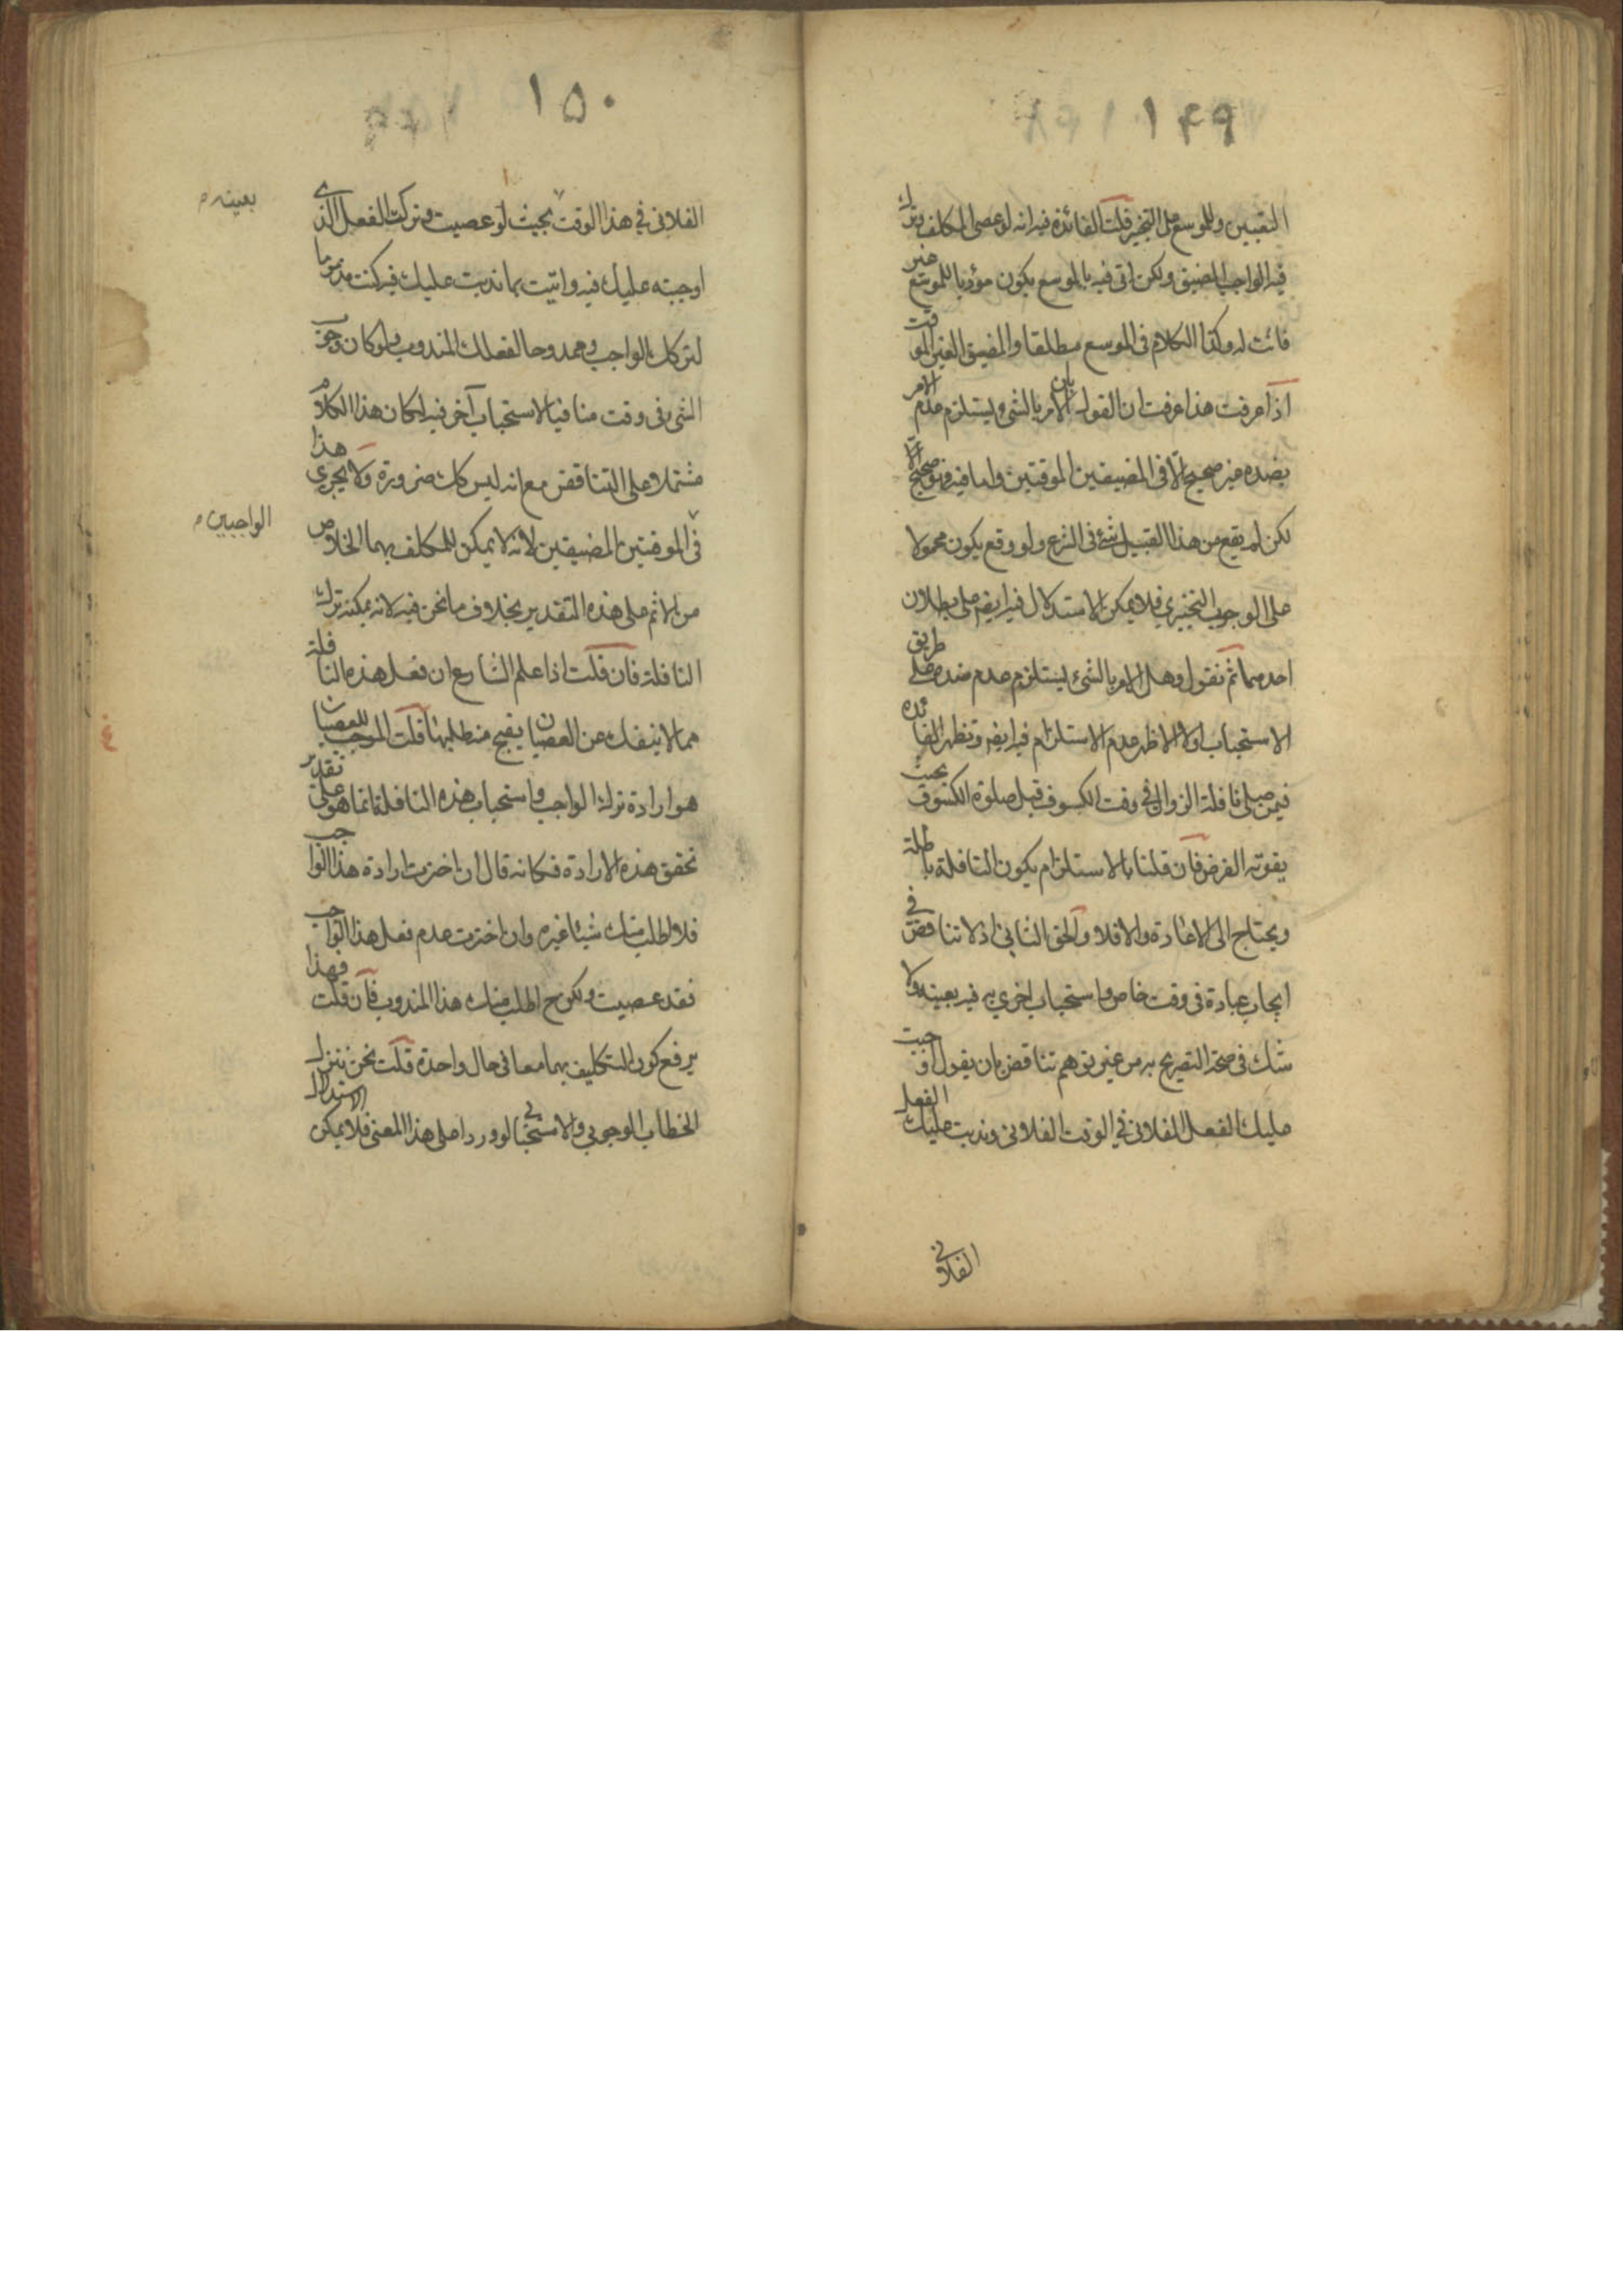 ١٤٩
التعيين وللموسع على التخيير قلت الفائدة فيه انه لو عصى المكلف وترك
فيه الواجب المضيق ولكن اتى فيه بالموسع يكون مؤديا للموسع غير
فائت له وكذا الكلام فى الموسع مطلقا والمضيق الغير الموقت
اذا عرفت هذا عرفت ان القول بان الامر بالشئ يستلزم عدم الامر
بضده غير صحيح الا فى المضيقين الموقتين واما فيه فهو صحيح الا
لكن لم يقع من هذا القبيل شئ فى الشرع ولو وقع يكون محمولا
على الوجوب التخييري فلا يمكن الاستدلال فيه ايضا على بطلان
احدهما ثم نقول وهل الامر بالشئ يستلزم عدم ضده على طريق
الاستحباب او لا الاظهر عدم الاستلزام فيه ايضا وتظهر الفائده
فيمن صلى نافلة الزوال فى وقت الكسوف قبل صلوة الكسوف بحيث
يفوته الفرض فان قلنا بالاستلزام يكون النافلة باطلة
ويحتاج الى الاعادة والا فلا والحق الثاني اذ لا تناقض في
ايجاب عبادة فى وقت خاص واستحباب اخرى به فيه بعينه ولا
شك فى صحة التصريح به من غير توهم تناقض بان يقول اوجبت
عليك الفعل الفلانى في الوقت الفلانى وندبت عليك الفعل
الفلاني
١٥٠
الفلانى في هذا الوقت بحيث لو عصيت وتركت الفعل الذي
بعينه م
اوجبته عليك فيه واتيت بما ندبت عليك فيه كنت مذموما
لتركك الواجب وممدوحا لفعلك المندوب ولو كان وجوب
الشئ فى وقت منافيا لاستحباب آخر فيه لكان هذا الكلام
مشتملا على التناقض مع انه ليس كك ضرورة ولا يجري هذا
فى الموقتين المضيقين لانه لا يمكن للمكلف بهما الخلاص
الواجبين م
من الاثم على هذه التقدير بخلاف ما نحن فيه لانه يمكنه ترك
النافلة فان قلت اذا علم الشارع ان فعل هذه النافلة
مما لا ينفك عن العصيان يقبح منه طلبها قلت الموجب للعصيان
هو ارادة ترك الواجب واستحباب هذه النافلة انما هو على تقدير
تحقق هذه الارادة فكانه قال ان اخترت ارادة هذا الواجب
فلا اطلب منك شيئا غيره وان اخترت عدم فعل هذا الواجب
فقد عصيت ولكن ح اطلب منك هذا المندوب فان قلت فهذا
يرفع كون التكليف بهما معا فى حال واحدة قلت نحن ننزل
الخطاب الوجوبى والاستحبابي لو وردا على هذا المعنى فلا يمكن الاستدلال